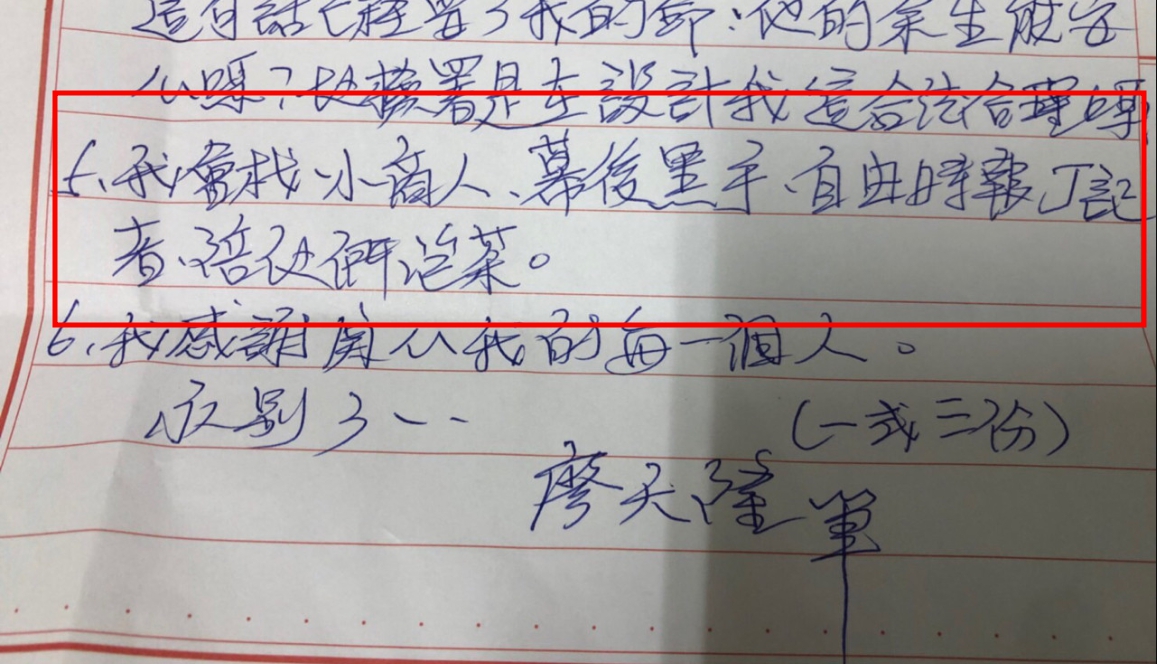 這句話已經害了我的命：他的余生能安
心嗎？他擺署是在設計我這合法合理嗎
5、我會找小商人、幕後黑手、自由時報丁記
者、陪他們泡茶。
6、我感謝関心我的每一個人。
永別了、、、
（一式三份）
廖天隆筆